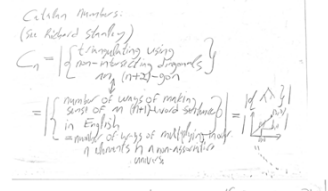 Catalan numbers:
(See Richard Stanley)
Cn = |{ triangulating using
non-intersecting diagonals
in (n+2)-gon }|
= |{ number of ways of making
sense of (n+1)-word sentence
in English
= number of ways of multiplying
n elements in a non-associative
}| = |{ }|